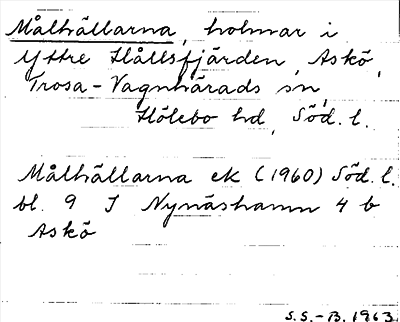 Målhällarna, holmar i
Yttre Hållsfjärden, Askö,
Trosa-Vagnhärads sn,
Hölebo hd, Söd. l.
Målhällarna ek (1960) Söd. l.
bl. 9 I Nynäshamn 4 b
Askö
S.S.-B. 1963